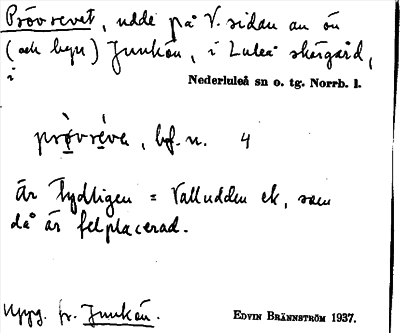 Prövrevet, udde på V. sidan av ön
(och byn) Junkön, i Luleå skärgård,
i
Nederluleå sn o. tg. Norrb. l.
prövréva, bf. n. 4
Är tydligen = Valludden ek, som
då är felplacerad.
Uppg. fr. Junkön.
EDVIN BRÄNNSTRÖM 1937.